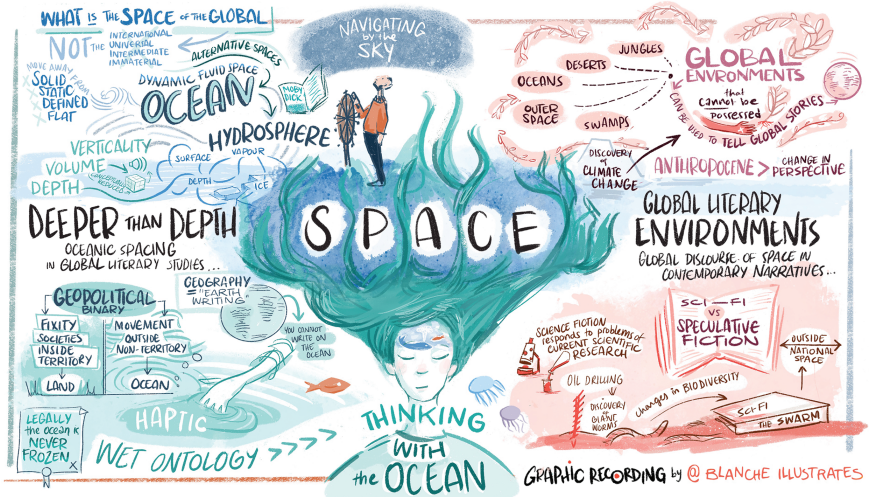 WHAT IS THE SPACE OF THE GLOBAL
NOT THE
INTERNATIONAL
UNIVERSAL
INTERMEDIATE
IMMATERIAL
ALTERNATIVE SPACES
MOVE AWAY FROM
SOLID
STATIC
DEFINED
FLAT
DYNAMIC FLUID SPACE
OCEAN
MOBY
DICK
HYDROSPHERE:
VERTICALITY
VOLUME
DEPTH
SURFACE
VAPOUR
DEPTH
ICE
NAVIGATING
by the
SKY
SPACE
DEEPER THAN DEPTH
OCEANIC SPACING
IN GLOBAL LITERARY STUDIES...
GEOPOLITICAL
BINARY
FIXITY
SOCIETIES
INSIDE
TERRITORY
LAND
MOVEMENT
OUTSIDE
NON-TERRITORY
OCEAN
GEOGRAPHY
= "EARTH
WRITING"
YOU CANNOT
WRITE ON
THE
OCEAN
HAPTIC
LEGALLY
the ocean is
NEVER
FROZEN
WET ONTOLOGY >>>>>
THINKING
WITH
the OCEAN
JUNGLES
DESERTS
OCEANS
OUTER
SPACE
SWAMPS
GLOBAL
ENVIRONMENTS
that
cannot be
possessed
CAN BE USED TO TELL GLOBAL STORIES
DISCOVERY
of
CLIMATE
CHANGE
ANTHROPOCENE > CHANGE IN
PERSPECTIVE
GLOBAL LITERARY
ENVIRONMENTS
GLOBAL DISCOURSE OF SPACE IN
CONTEMPORARY NARRATIVES...
SCI-FI
VS
SPECULATIVE
FICTION
SCIENCE FICTION
responds to problems of
CURRENT SCIENTIFIC
RESEARCH
OUTSIDE
NATIONAL
SPACE
OIL DRILLING
DISCOVERY
of
GIANT
WORMS
changes in BIODIVERSITY
SCI-FI
THE SWARM
GRAPHIC RECORDING by @ BLANCHE ILLUSTRATES